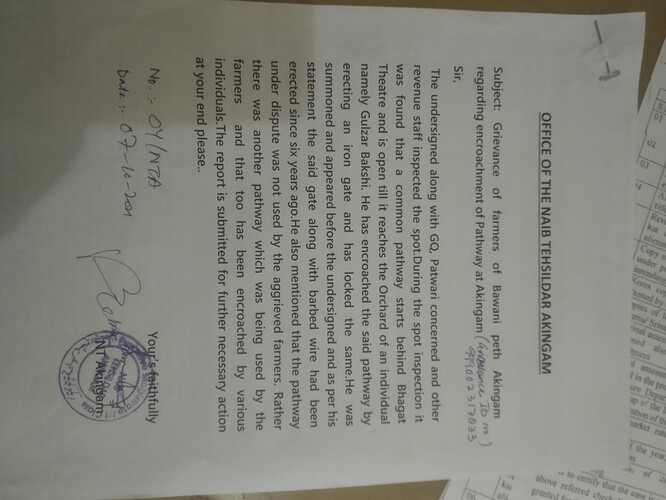 OFFICE OF THE NAIB TEHSILDAR AKINGAM
Subject: Grievance of farmers of Bawani peth Akingam
regarding encroachment of Pathway at Akingam (Grievance ID no)
Sir,
The undersigned along with GQ, Patwari concerned and other
revenue staff inspected the spot.During the spot inspection it
was found that a common pathway starts behind Bhagat
Theatre and is open till it reaches the Orchard of an individual
namely Gulzar Bakshi. He has encroached the said pathway by
erecting an iron gate and has locked the same.He was
summoned and appeared before the undersigned and as per his
statement the said gate along with barbed wire had been
erected since six years ago.He also mentioned that the pathway
under dispute was not used by the aggrieved farmers. Rather
there was another pathway which was being used by the
farmers and that too has been encroached by various
individuals.The report is submitted for further necessary action
at your end please..
Your's faithfully
NT Akingam
No. :- 04/NTA
Date :- 07-10-2021